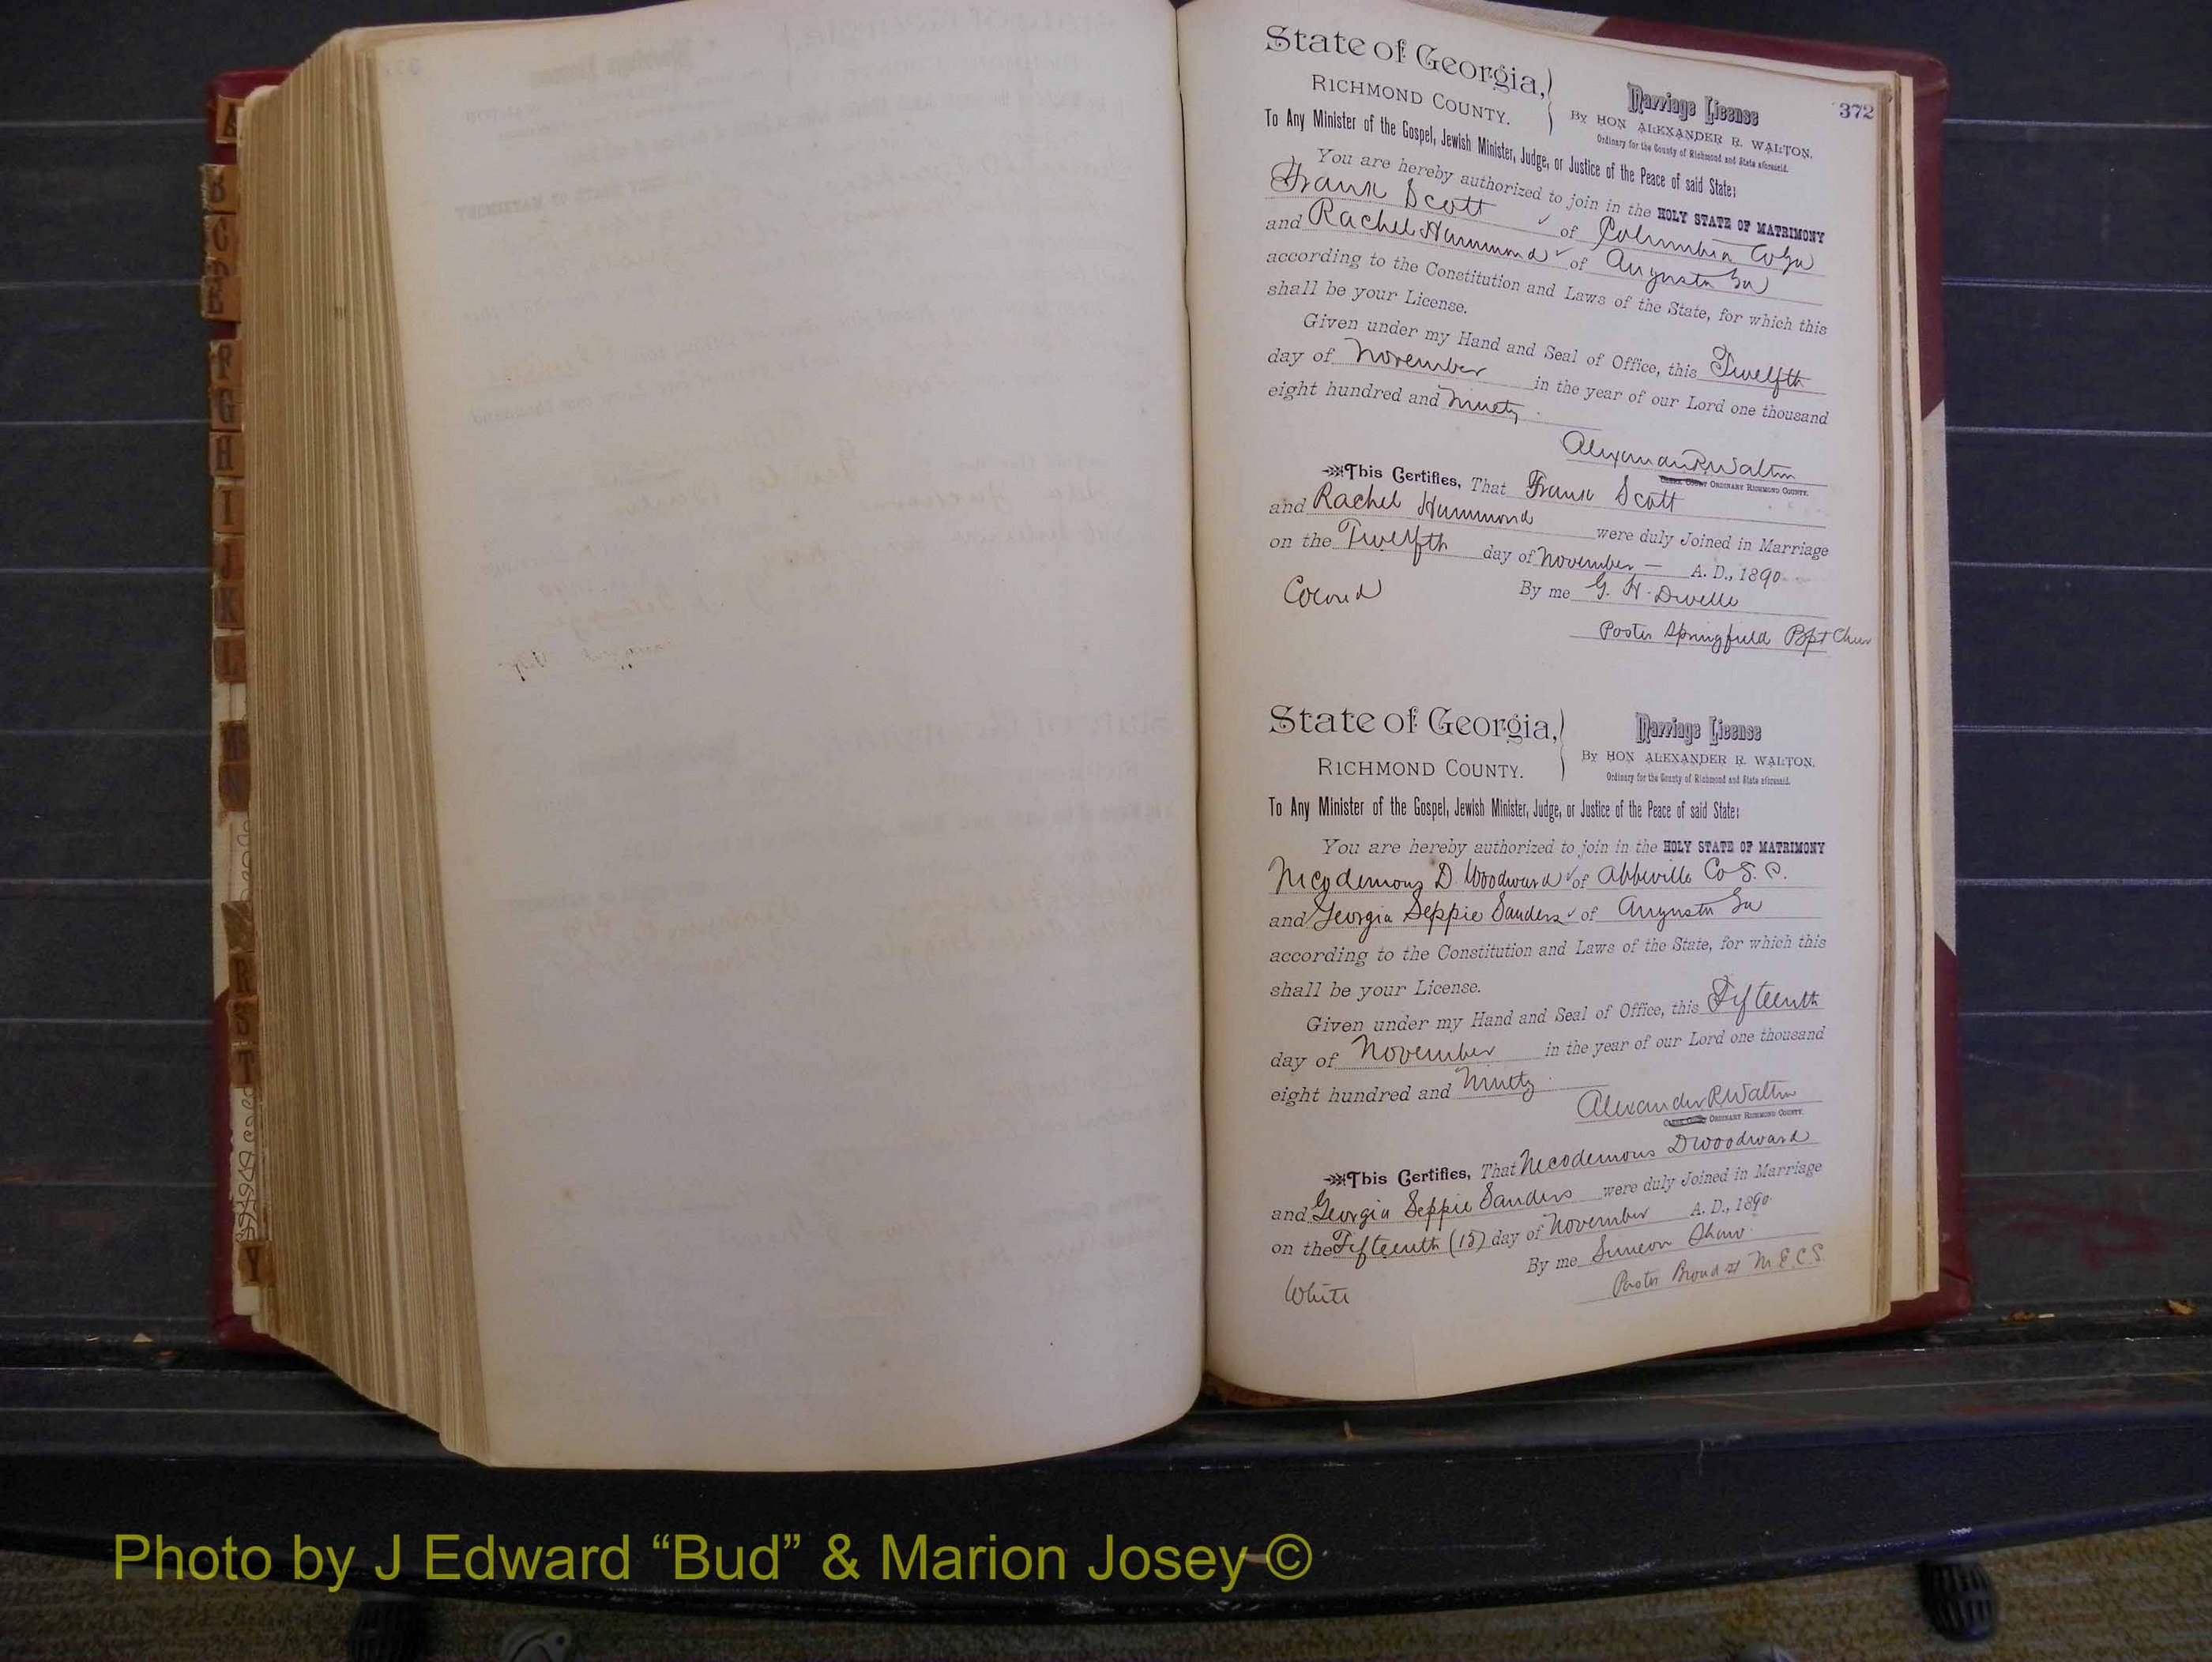 372
State of Georgia,
RICHMOND COUNTY.
Marriage License
By HON ALEXANDER R. WALTON,
Ordinary for the County of Richmond and State aforesaid.
To Any Minister of the Gospel, Jewish Minister, Judge, or Justice of the Peace of said State:
You are hereby authorized to join in the HOLY STATE OF MATRIMONY
Frank Scott of Columbia Co Ga
and Rachel Hammond of Augusta Ga
according to the Constitution and Laws of the State, for which this
shall be your License.
Given under my Hand and Seal of Office, this Twelfth
day of November in the year of our Lord one thousand
eight hundred and Ninety
Alexander R Walton
ORDINARY RICHMOND COUNTY.
This Certifies, That Frank Scott
and Rachel Hammond were duly Joined in Marriage
on the Twelfth day of November — A. D., 1890
Colored By me G. H. Dwelle
Pastor Springfield Bpt Chur
State of Georgia,
RICHMOND COUNTY.
Marriage License
By HON ALEXANDER R. WALTON,
Ordinary for the County of Richmond and State aforesaid.
To Any Minister of the Gospel, Jewish Minister, Judge, or Justice of the Peace of said State:
You are hereby authorized to join in the HOLY STATE OF MATRIMONY
Necodemous D. Woodward of Abbeville Co S. C.
and Georgia Seppie Sanders of Augusta Ga
according to the Constitution and Laws of the State, for which this
shall be your License.
Given under my Hand and Seal of Office, this Fifteenth
day of November in the year of our Lord one thousand
eight hundred and Ninety
Alexander R Walton
ORDINARY RICHMOND COUNTY.
This Certifies, That Necodemous D Woodward
and Georgia Seppie Sanders were duly Joined in Marriage
on the Fifteenth (15) day of November A. D., 1890
By me Simeon Shaw
White Pastor Broad St M. E. C. S.
B
C
E
F
G
H
I
J
K
L
N
R
S
T
Y
Photo by J Edward “Bud” & Marion Josey ©